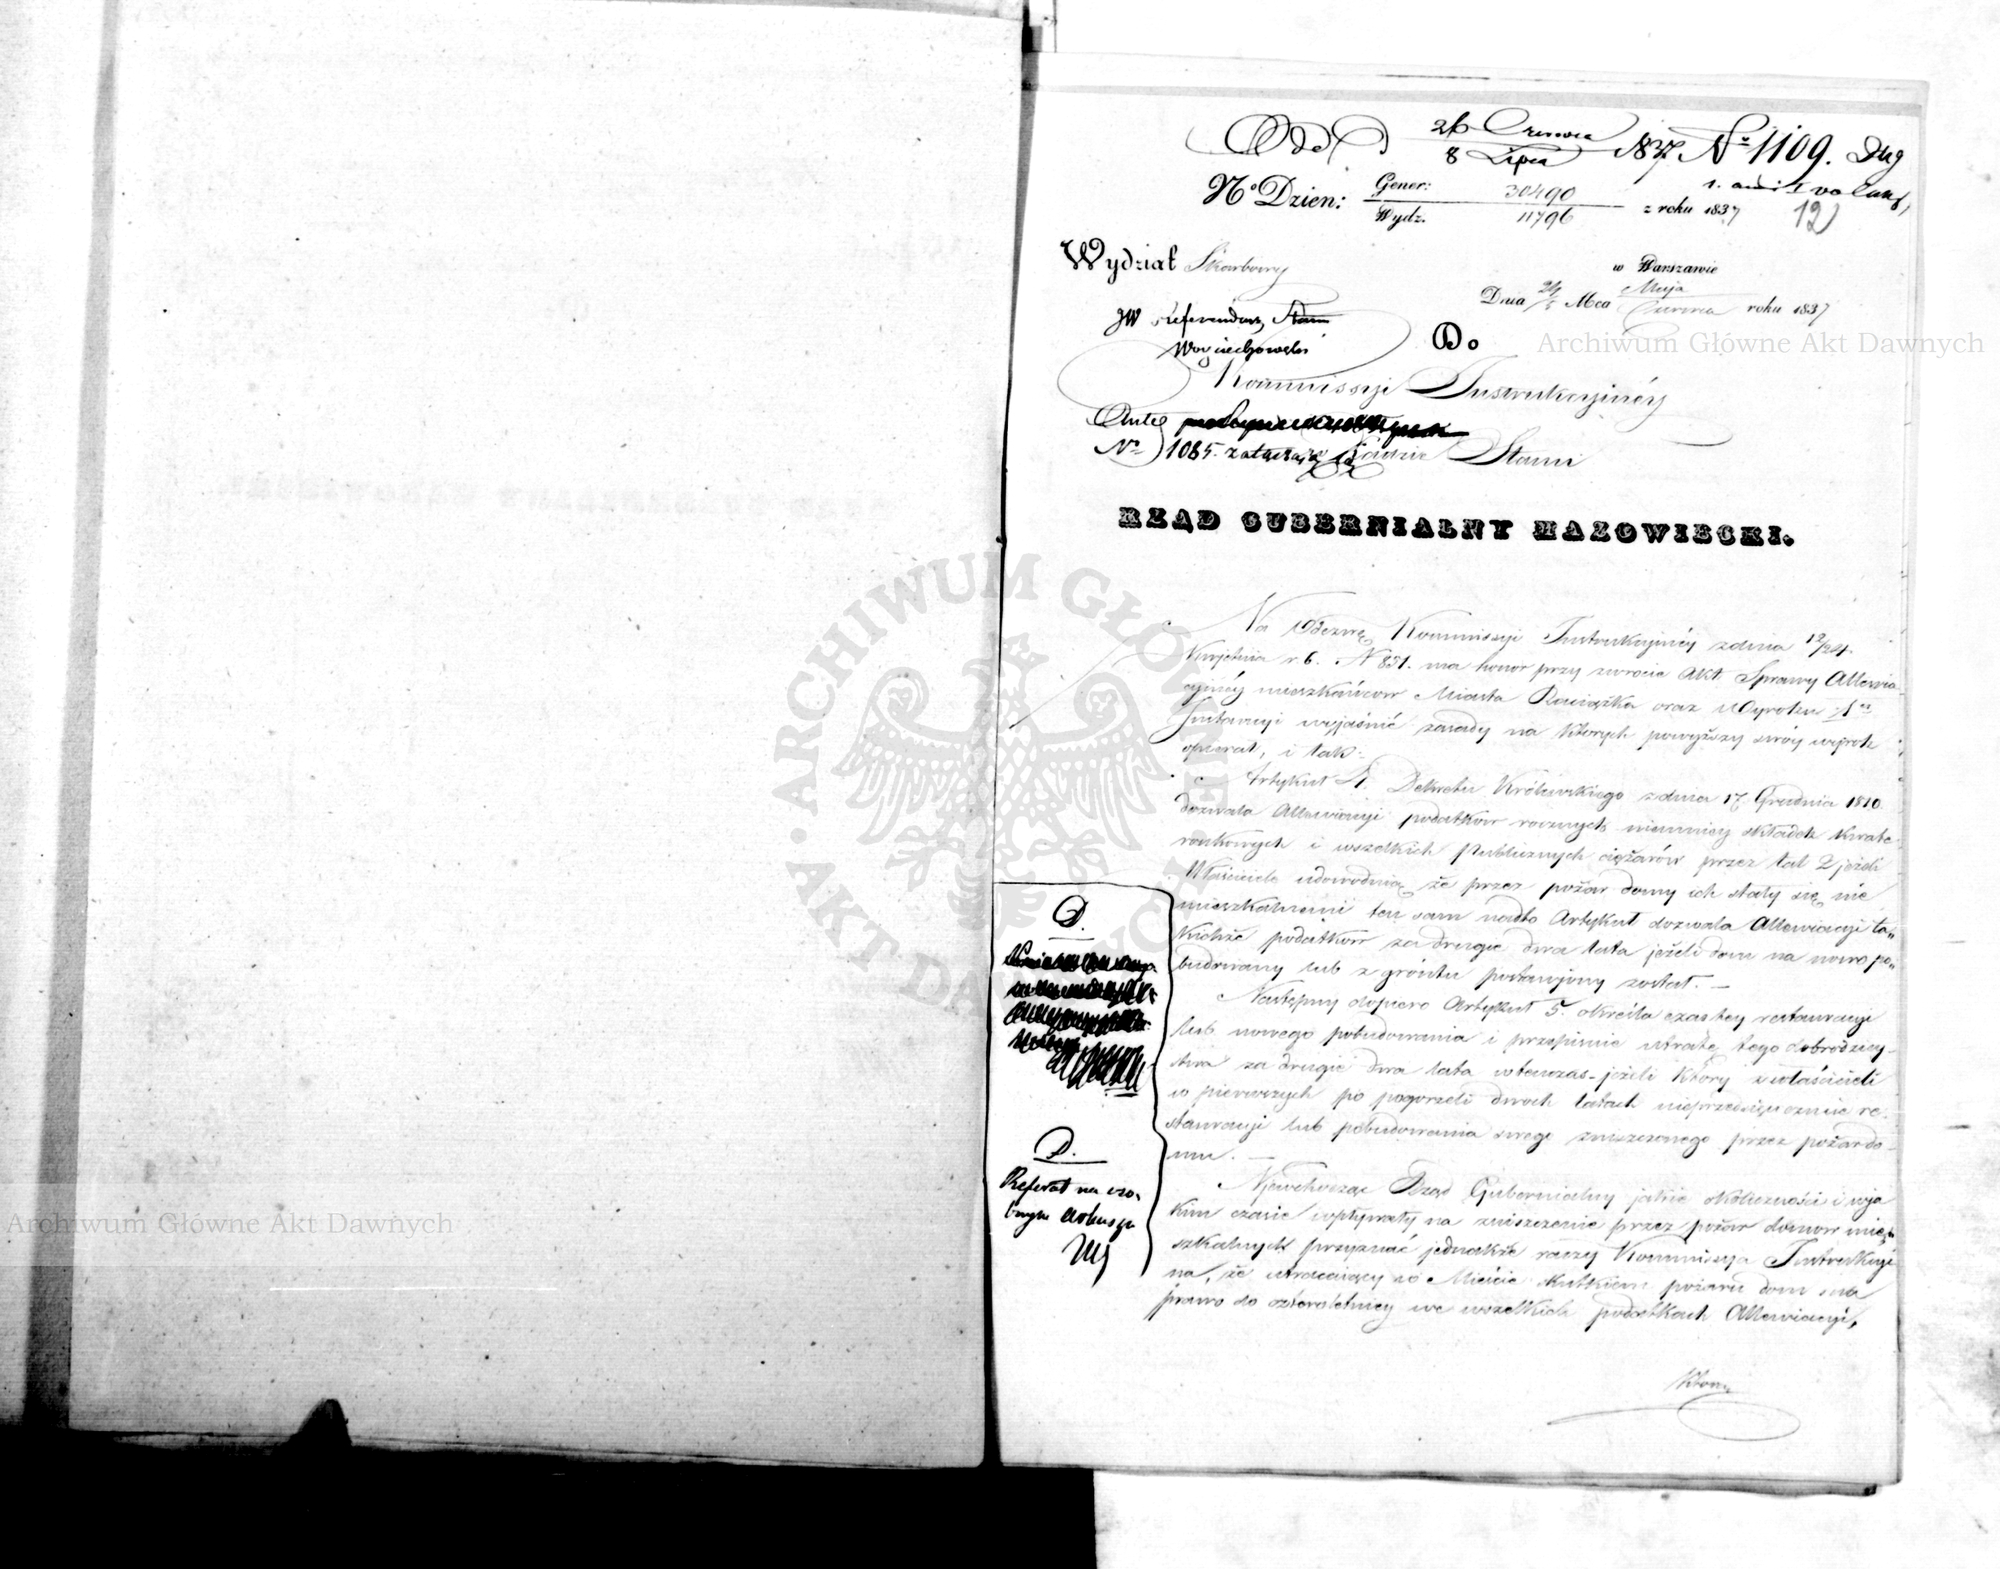 Ode 26 Czerwca / 8 Lipca 1837 Nº 1109.
Nº Dzien: Gener: 30490
Wydz. 11796 z roku 1837
12
Wydział Skarbowy
w Warszawie
Dnia 24/5 Mca Maja / Czerwca roku 1837
JW Referendarz Stanu
Woyciechowski
Do
Kommissyi Instrukcyinéy
Nr 1085. w Radzie Stanu
RZĄD GUBERNIALNY MAZOWIECKI.
Na Odezwę Kommissyi Instrukcyinéy z dnia 12/24.
Kwietnia r. b. N 851. ma honor przy zwrocie Akt Sprawy Allewia
cyinéy mieszkańcow Miasta Raciążka oraz Wyroku 1ey
Instancyi wyjaśnić zasady na których powyższy swóy wyrok
opierał, i tak:
Artykuł 1. Dekretu Królewskiego z dnia 17. Grudnia 1810
dozwala Allewiacyi podatków rocznych niemniey składek kwate
runkowych i wszelkich Publicznych ciężarów przez lat 2 jeżeli
Właściciele udowodnią że przez pożar domy ich stały się nie
mieszkalnemi ten sam nadto Artykuł dozwala Allewiacyi ta„
kichże podatków za drugie dwa lata jeżeli dom na nowo po„
budowany lub z gróntu postawiony został. —
Następny dopiero Artykuł 5. określa czas tey restauracyi
lub nowego pobudowania i przepisuie utratę tego dobrodziey-
stwa za drugie dwa lata wtenczas jeżeli który z właścicieli
w pierwszych po pogorzeli dwóch latach nieprzedsięweźmie re-
stauracyi lub pobudowania swego zniszczonego przez pożar do-
mu. —
Niewchodząc Rząd Gubernialny jakie okoliczności i w ja
kim czasie wpływały na zniszczenie przez pożar domów mie„
szkalnych przyznać jednakże raczy Kommissya Instrukcyi
na, że utracaiący w Mieście skutkiem pożaru dom ma
prawo do czteroletniey we wszelkich podatkach Allewiacyi,
który
D.
D.
Referat na oso„
bnym arkuszu
ARCHIWUM GŁÓWNE AKT DAWNYCH
Archiwum Główne Akt Dawnych
Archiwum Główne Akt Dawnych